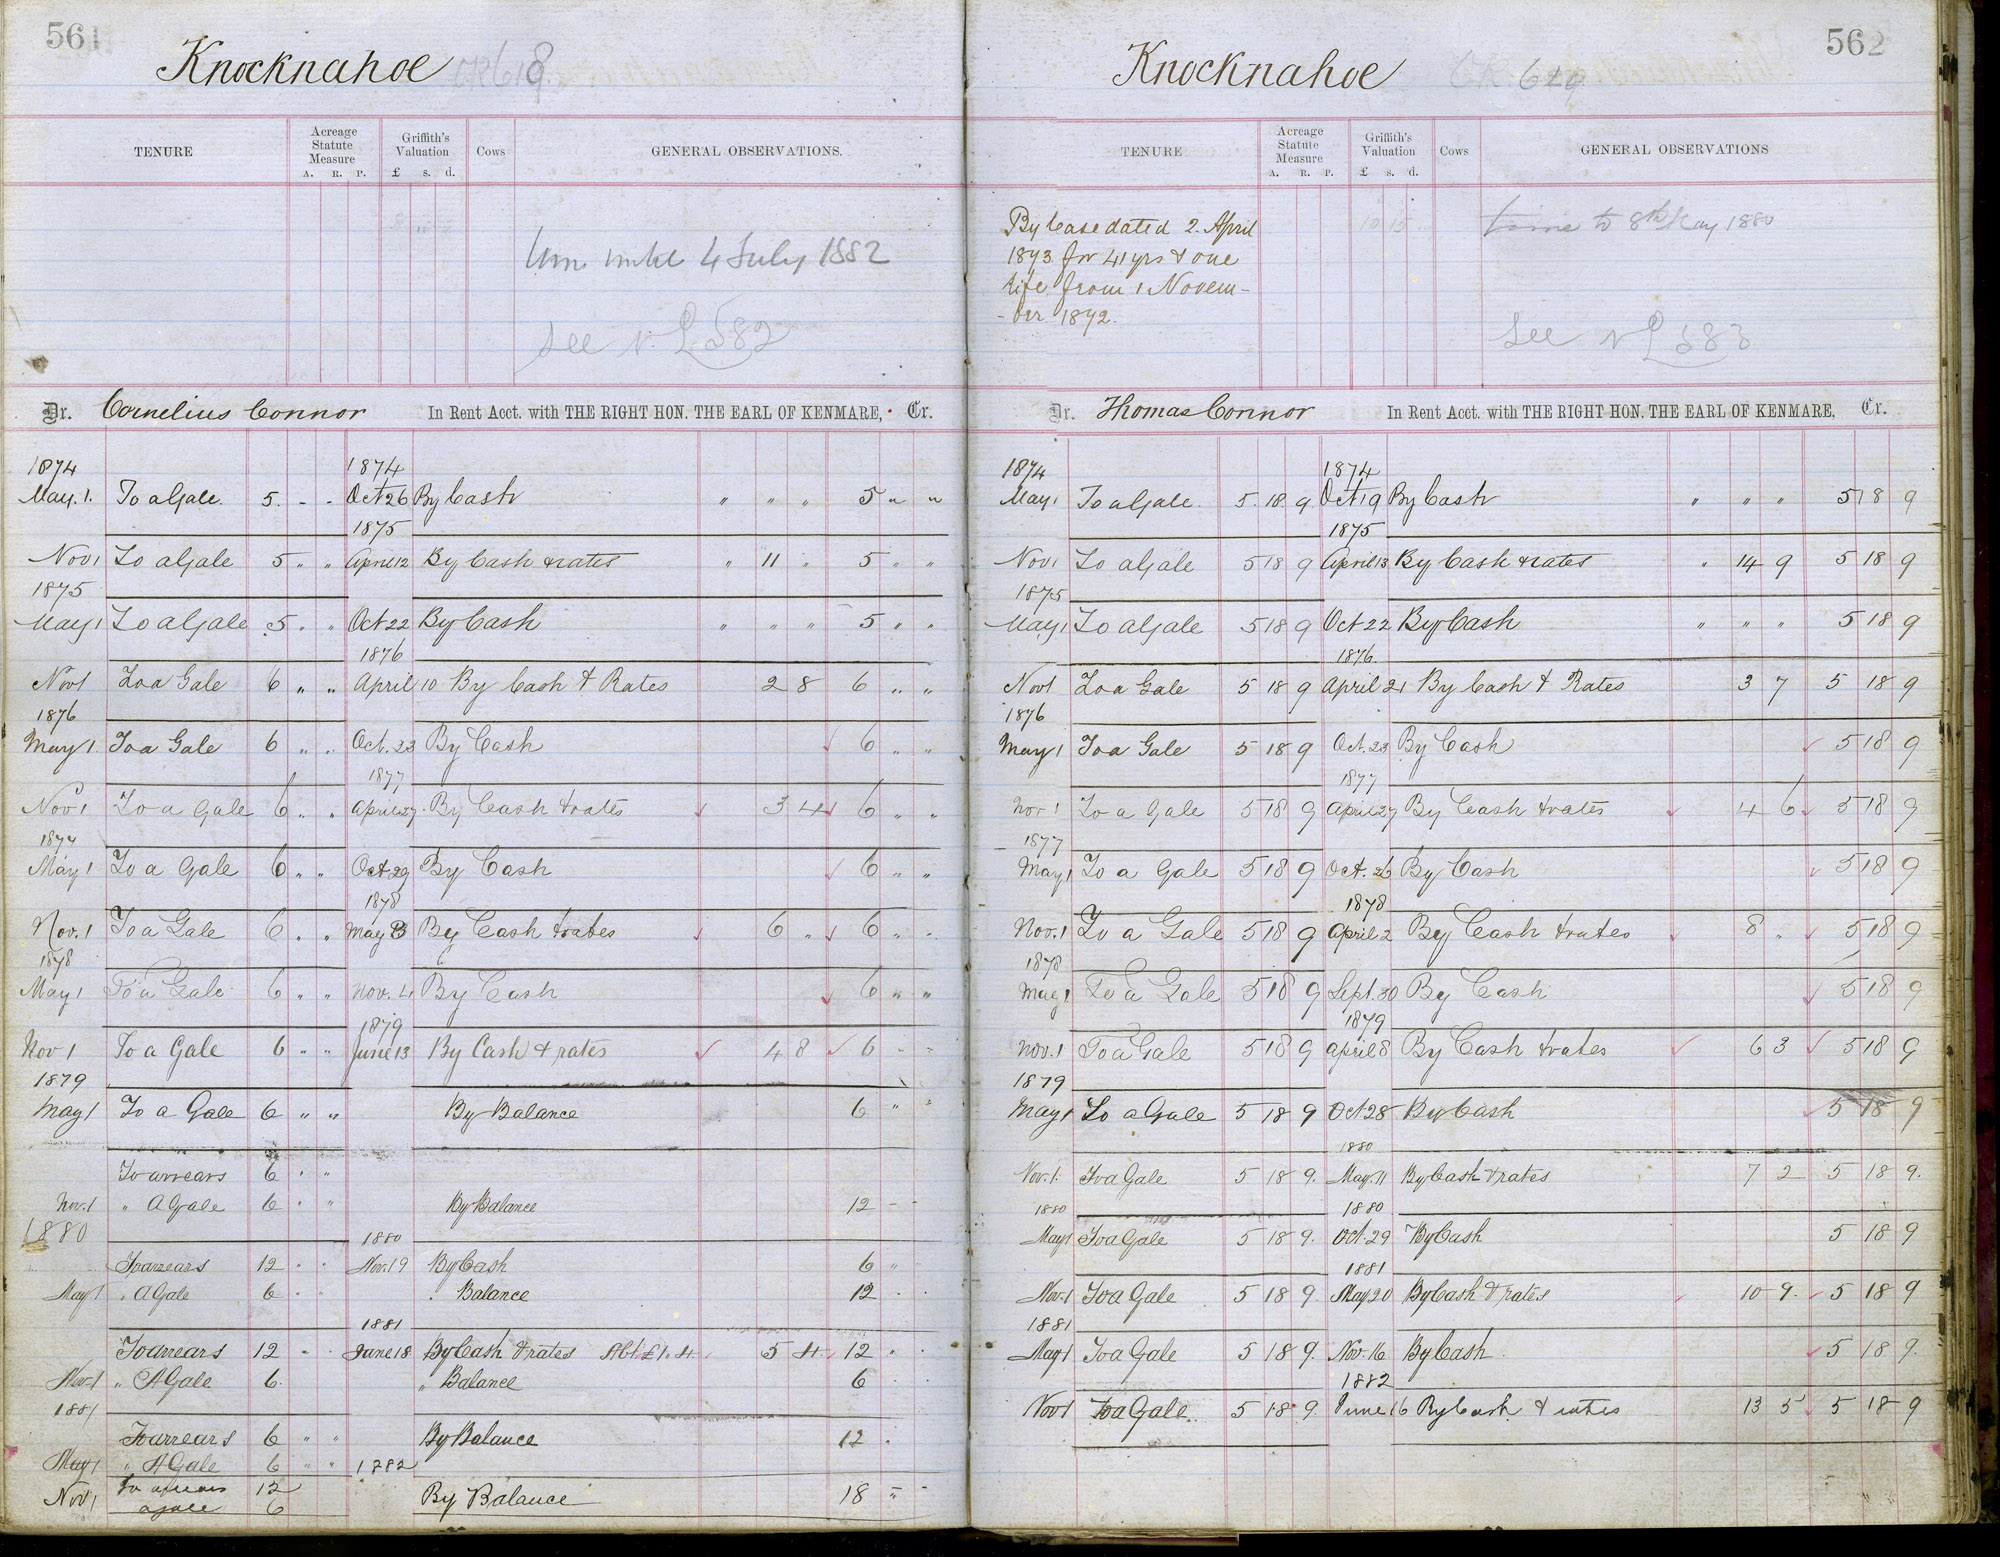 561
Knocknahoe
TENURE
Acreage Statute Measure
A. R. P.
Griffith's Valuation
£ s. d.
Cows
GENERAL OBSERVATIONS.
until 4 July 1882
see N. L 582
Dr. Cornelius Connor In Rent Acct. with THE RIGHT HON. THE EARL OF KENMARE, Cr.
1874 1874
May. 1. To a Gale. 5. - - Oct 26 By Cash " " " 5 " "
1875
Nov 1 To a Gale 5 " " April 12 By Cash & rates " 11 " 5 " "
1875
May 1 To a Gale 5 " " Oct 22 By Cash " " " 5 " "
1876
Nov 1 To a Gale 6 " " April 10 By Cash & Rates 2 8 6 " "
1876
May 1 To a Gale 6 " " Oct. 23 By Cash 6 " "
1877
Nov 1 To a Gale 6 " " April 27 By Cash & rates 3 4 6 " "
1877
May 1 To a Gale 6 " " Oct. 29 By Cash 6 " "
1878
Nov. 1 To a Gale 6 " " May 3 By Cash & rates 6 " 6 " "
1878
May 1 To a Gale 6 " " Nov. 4 By Cash 6 " "
1879
Nov 1 To a Gale 6 " " June 13 By Cash & rates 4 8 6 " "
1879
May 1 To a Gale 6 " " By Balance 6 " "
To arrears 6 " "
Nov. 1 " A Gale 6 " " By Balance 12 - -
1880 1880
To arrears 12 " " Nov. 19 By Cash 6 "
May 1 " A Gale 6 " " " Balance 12 " "
1881
To arrears 12 " " June 18 By Cash & rates Abt. £1.4. 5 4 12 " "
Nov. 1 " A Gale 6 " Balance 6 "
1881
To arrears 6 " " By Balance 12 "
May 1 " A Gale 6 " " 1882
To arrears 12
Nov 1 a gale 6 By Balance 18 " -
562
Knocknahoe
TENURE
Acreage Statute Measure
A. R. P.
Griffith's Valuation
£ s. d.
Cows
GENERAL OBSERVATIONS
By lease dated 2. April
1873 for 41 yrs & one
life from 1 Novem-
-ber 1872.
10 15
to 8th May 1880
see N L 583
Dr. Thomas Connor In Rent Acct. with THE RIGHT HON. THE EARL OF KENMARE, Cr.
1874 1874
May 1 To a Gale. 5. 18 9 Oct 19 By Cash " " " 5 18 9
1875
Nov 1 To a Gale 5 18 9 April 13 By Cash & rates " 14 9 5 18 9
1875
May 1 To a Gale 5 18 9 Oct 22 By Cash " " " 5 18 9
1876.
Nov 1 To a Gale 5 18 9 April 21 By Cash & Rates 3 7 5 18 9
1876
May 1 To a Gale 5 18 9 Oct. 23 By Cash 5 18 9
1877
Nov 1 To a Gale 5 18 9 April 27 By Cash & rates 4 6 5 18 9
1877
May 1 To a Gale 5 18 9 Oct. 26 By Cash 5 18 9
1878
Nov. 1 To a Gale 5 18 9 April 2 By Cash & rates 8 " 5 18 9
1878
May 1 To a Gale 5 18 9 Sept. 30 By Cash 5 18 9
1879
Nov. 1 To a Gale 5 18 9 April 8 By Cash & rates 6 3 5 18 9
1879
May 1 To a Gale 5 18 9 Oct 28 By Cash 5 18 9
1880
Nov. 1. To a Gale 5 18 9. May. 11 By Cash & rates 7 2 5 18 9.
1880 1880
May 1 To a Gale 5 18 9. Oct. 29 By Cash 5 18 9
1881
Nov. 1 To a Gale 5 18 9. May 20 By Cash & rates 10 9. 5 18 9
1881
May 1 To a Gale 5 18 9. Nov. 16 By Cash 5 18 9.
1882
Nov 1 To a Gale 5 18 9. June 16 By Cash & rates 13 5 5 18 9